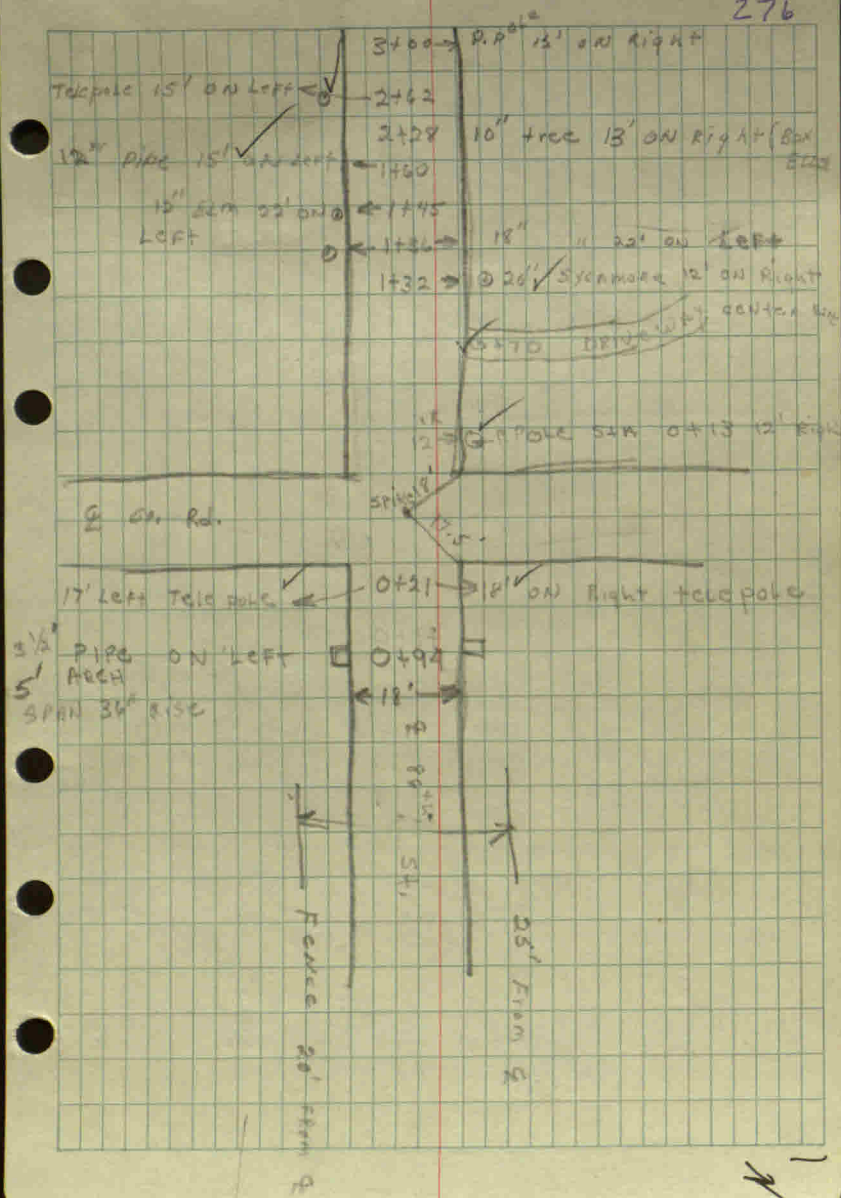 276
3+00 P.Pole 13' ON Right
Telepole 15' ON Left 2+62
2+28 10" tree 13' ON Right (Box
12" PIPE 15' Left 1+60
12" ELM 22' ON 1+45
LEFT
1+36 18" " 22' ON LEFT
1+32 20" Sycamore 12' ON Right
CENTER
0+70 DRIVEWAY
12 POLE STA 0+13 12' Right
SPIKE 18'
℄ Co. Rd.
17.5
17' Left Telepole 0+21 18' ON Right telepole
3 1/2" PIPE ON LEFT 0+94
ARCH
5'
SPAN 36" RISE
18'
℄ 80th St.
25' From ℄
Fence 20' From ℄
1